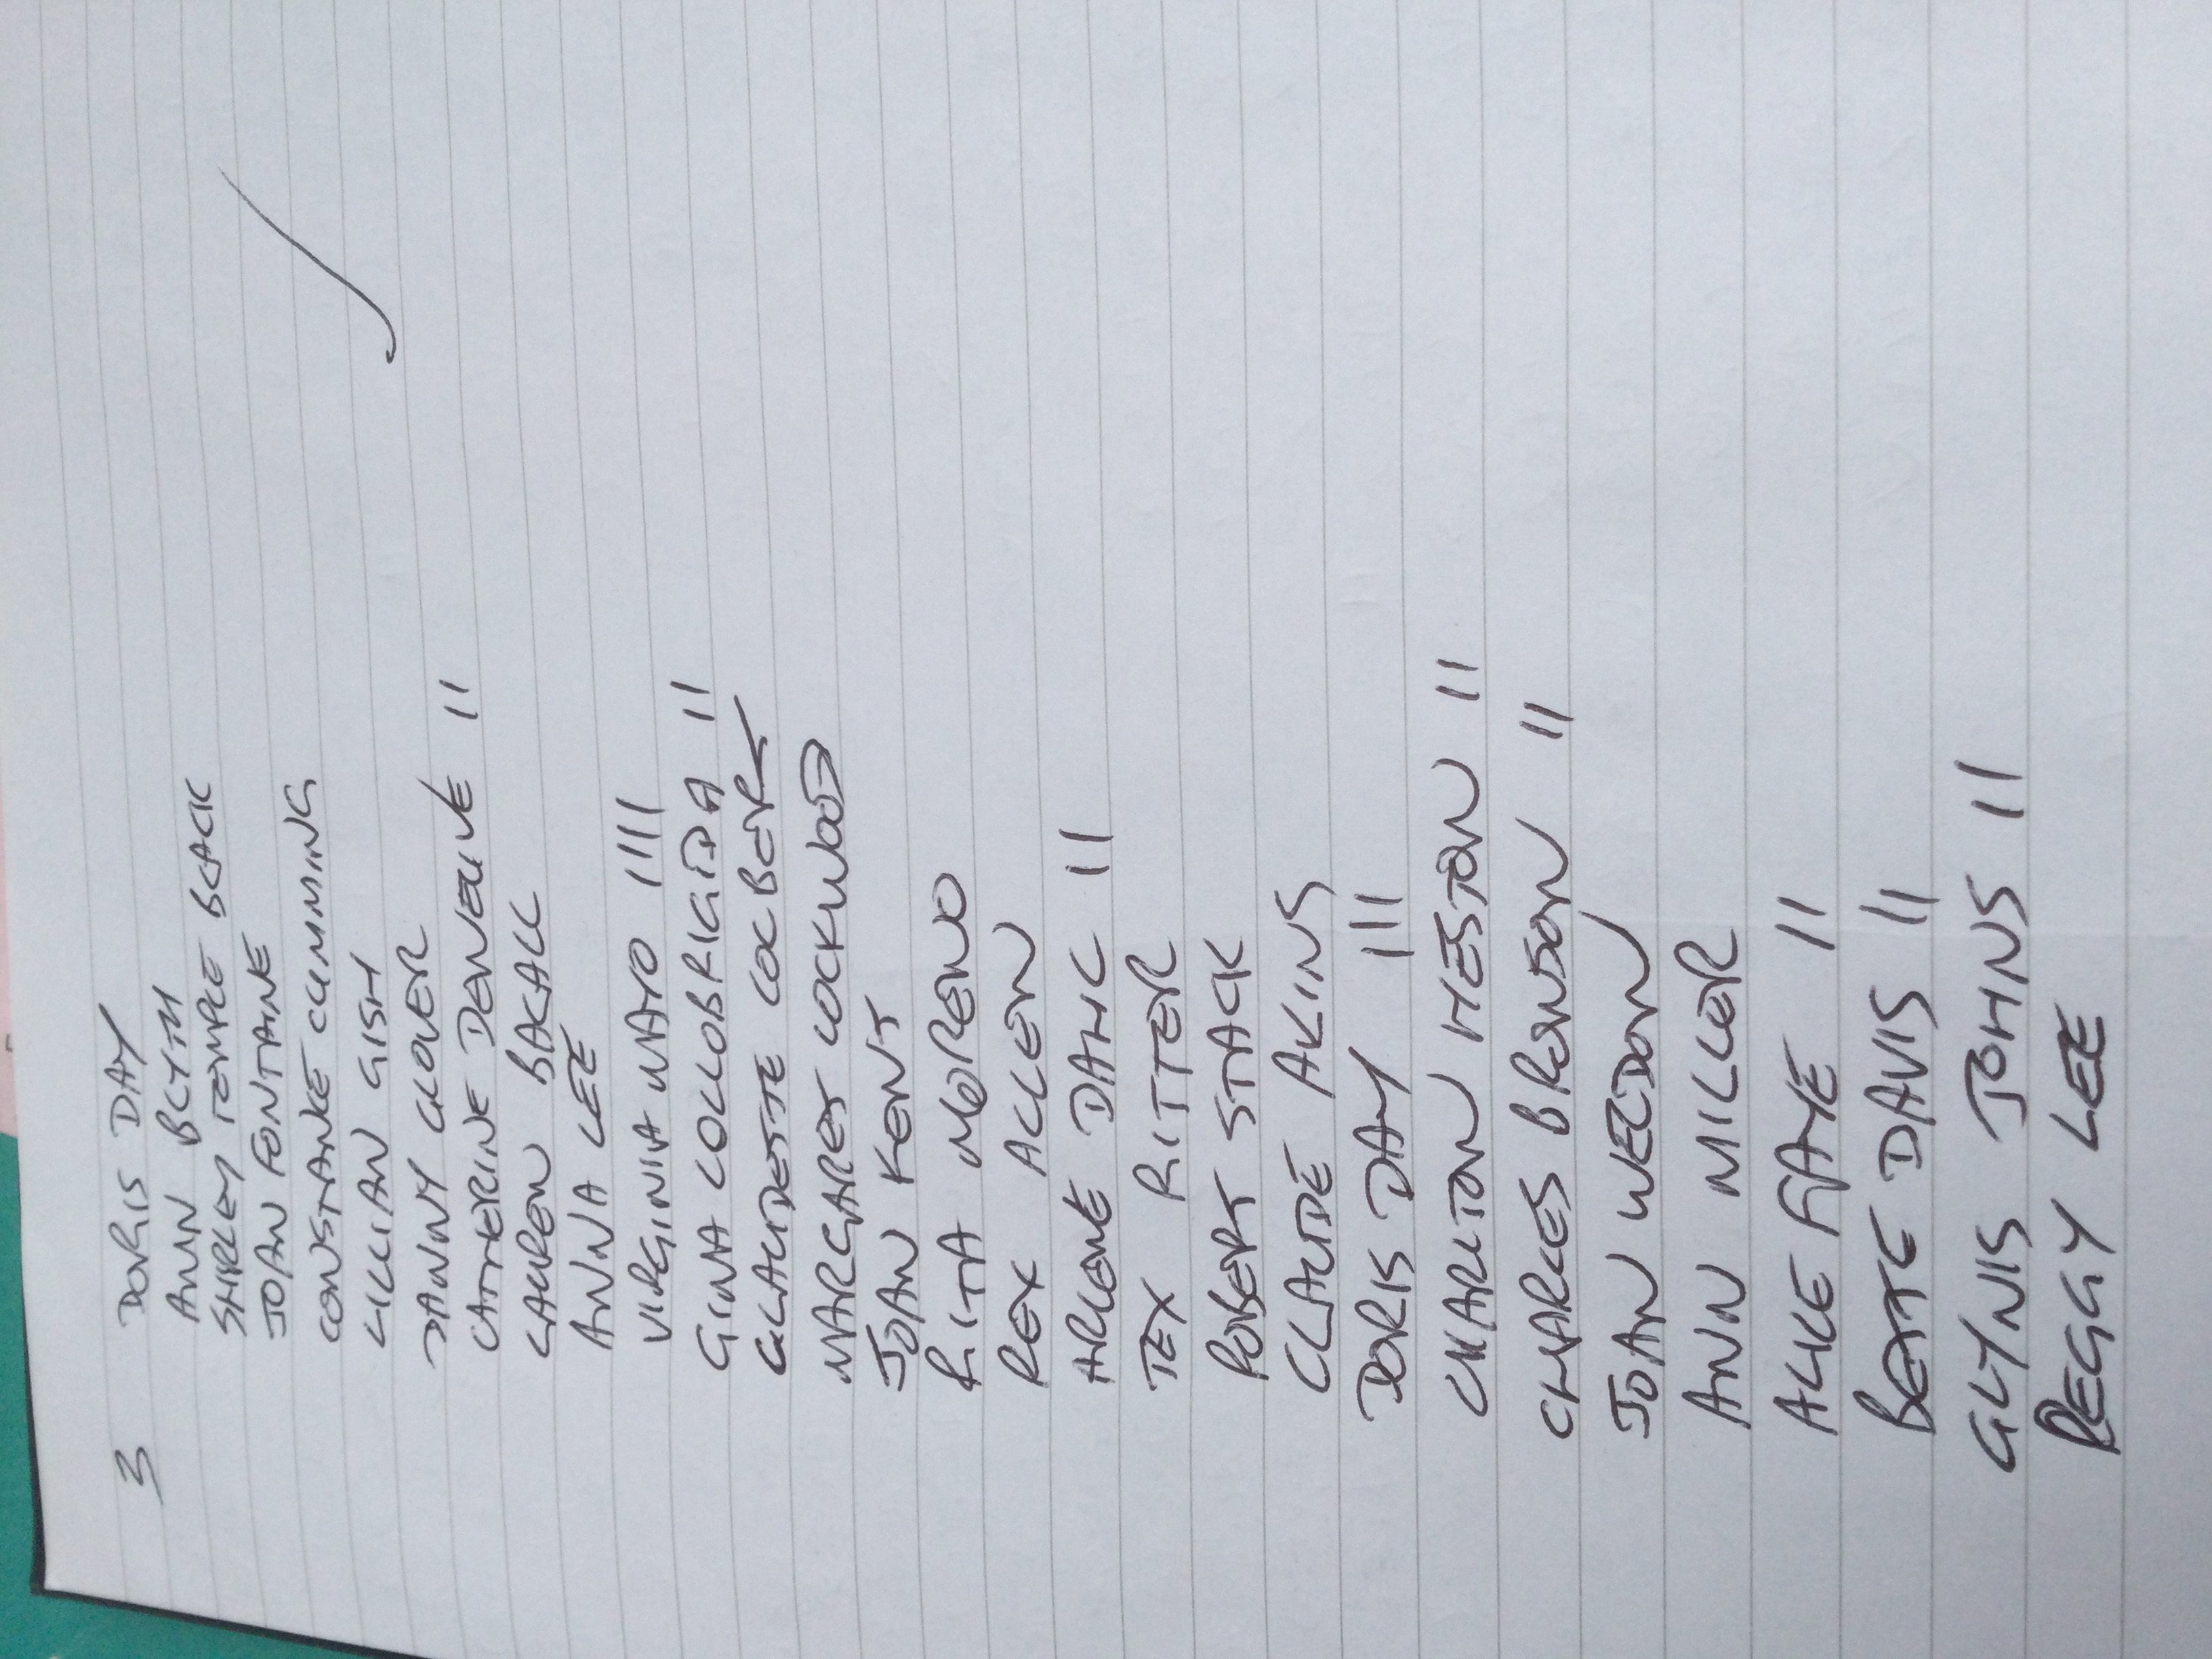 3 DORIS DAY
ANN BLYTH
SHIRLEY TEMPLE BLACK
JOAN FONTAINE
CONSTANCE CUMMING
LILLIAN GISH
DANNY GLOVER
CATHERINE DENEUVE 11
LAUREN BACALL
ANNA LEE
VIRGINIA MAYO 1111
GINA LOLLOBRIGIDA 11
CLAUDETTE COLBERT
MARGARET LOCKWOOD
JOAN KENT
RITA MORENO
REX ALLEN
ARLENE DAHL 11
TEX RITTER
ROBERT STACK
CLAUDE AKINS
DORIS DAY 111
CHARLTON HESTON 11
CHARLES BRONSON 11
JOAN WELDON
ANN MILLER
ALICE FAYE 11
BETTE DAVIS 11
GLYNIS JOHNS 11
PEGGY LEE